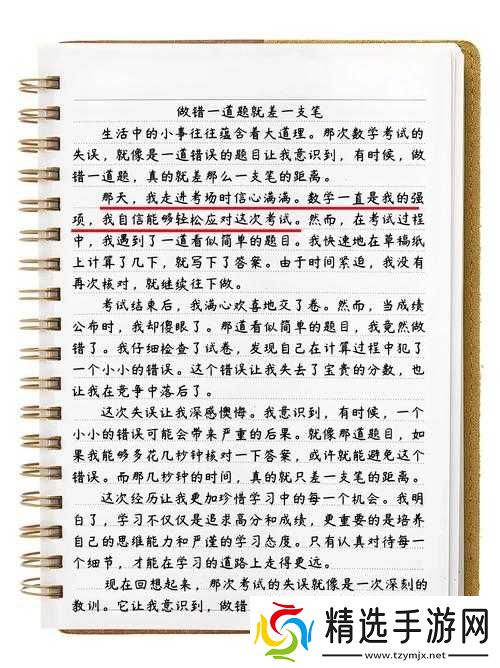 做错一道题就差一支笔
生活中的小事往往蕴含着大道理。那次数学考试的
失误，就像是一道错误的题目让我意识到，有时候，做
错一道题，真的就差那么一支笔的距离。
那天，我走进考场时信心满满。数学一直是我的强
项，我自信能够轻松应对这次考试。然而，在考试过程
中，我遇到了一道看似简单的题目。我快速地在草稿纸
上计算了几下，就写下了答案。由于时间紧迫，我没有
再次核对，就继续往下做。
考试结束后，我满心欢喜地交了卷。然而，当成绩
公布时，我却傻眼了。那道看似简单的题目，我竟然做
错了。我仔细检查了试卷，发现自己在计算过程中犯了
一个小小的错误。这个错误让我失去了宝贵的分数，也
让我在竞争中落后了。
这次失误让我深感懊悔。我意识到，有时候，一个
小小的错误可能会带来严重的后果。就像那道题目，如
果我能够多花几秒钟核对一下答案，或许就能避免这个
错误。而那几秒钟的时间，真的就只差一支笔的距离。
这次经历让我更加珍惜学习中的每一个机会。我明
白了，学习不仅仅是追求高分和成绩，更重要的是培养
自己的思维能力和严谨的学习态度。只有认真对待每一
个细节，才能在学习的道路上走得更远。
现在回想起来，那次考试的失误就像是一次深刻的
教训。它让我意识到，做错
精选手游网
www.tzymjx.net